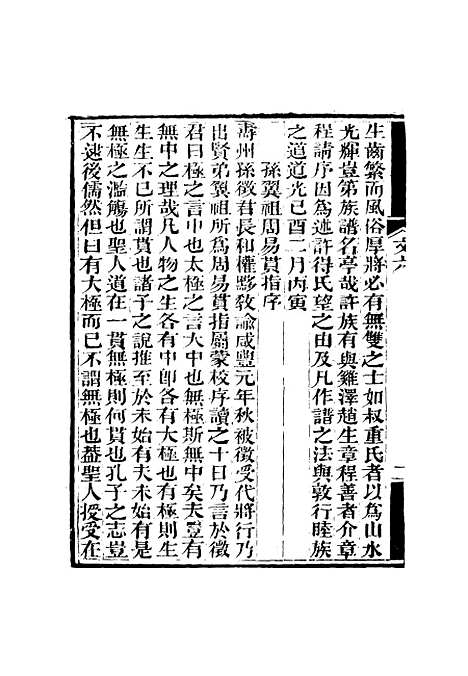 生齒繁而風俗厚將必有無雙之士如叔重氏者以爲山水
光輝豈第族譜名亭哉許族有與雞澤趙生章程善者介章
程請序因爲述許得氏望之由及凡作譜之法與敦行睦族
之道道光己酉二月丙寅
孫翼祖周易貫指序
壽州孫徵君長和權黟敎諭咸豐元年秋被徵受代將行乃
出賢弟翼祖所爲周易貫指屬蒙校序讀之十日乃言於徵
君曰無極之言中也太極之言大中也無極斯無中矣夫豈有
無中之理哉凡人物之生各有中卽各有大極也有極則生
生生不已所謂貫也諸子之說推至於未始有夫未始有是
無極之濫觴也聖人道在一貫無極則何貫也孔子之志豈
不逮後儒然但曰有大極而已不謂無極也葢聖人授受在
文六
二